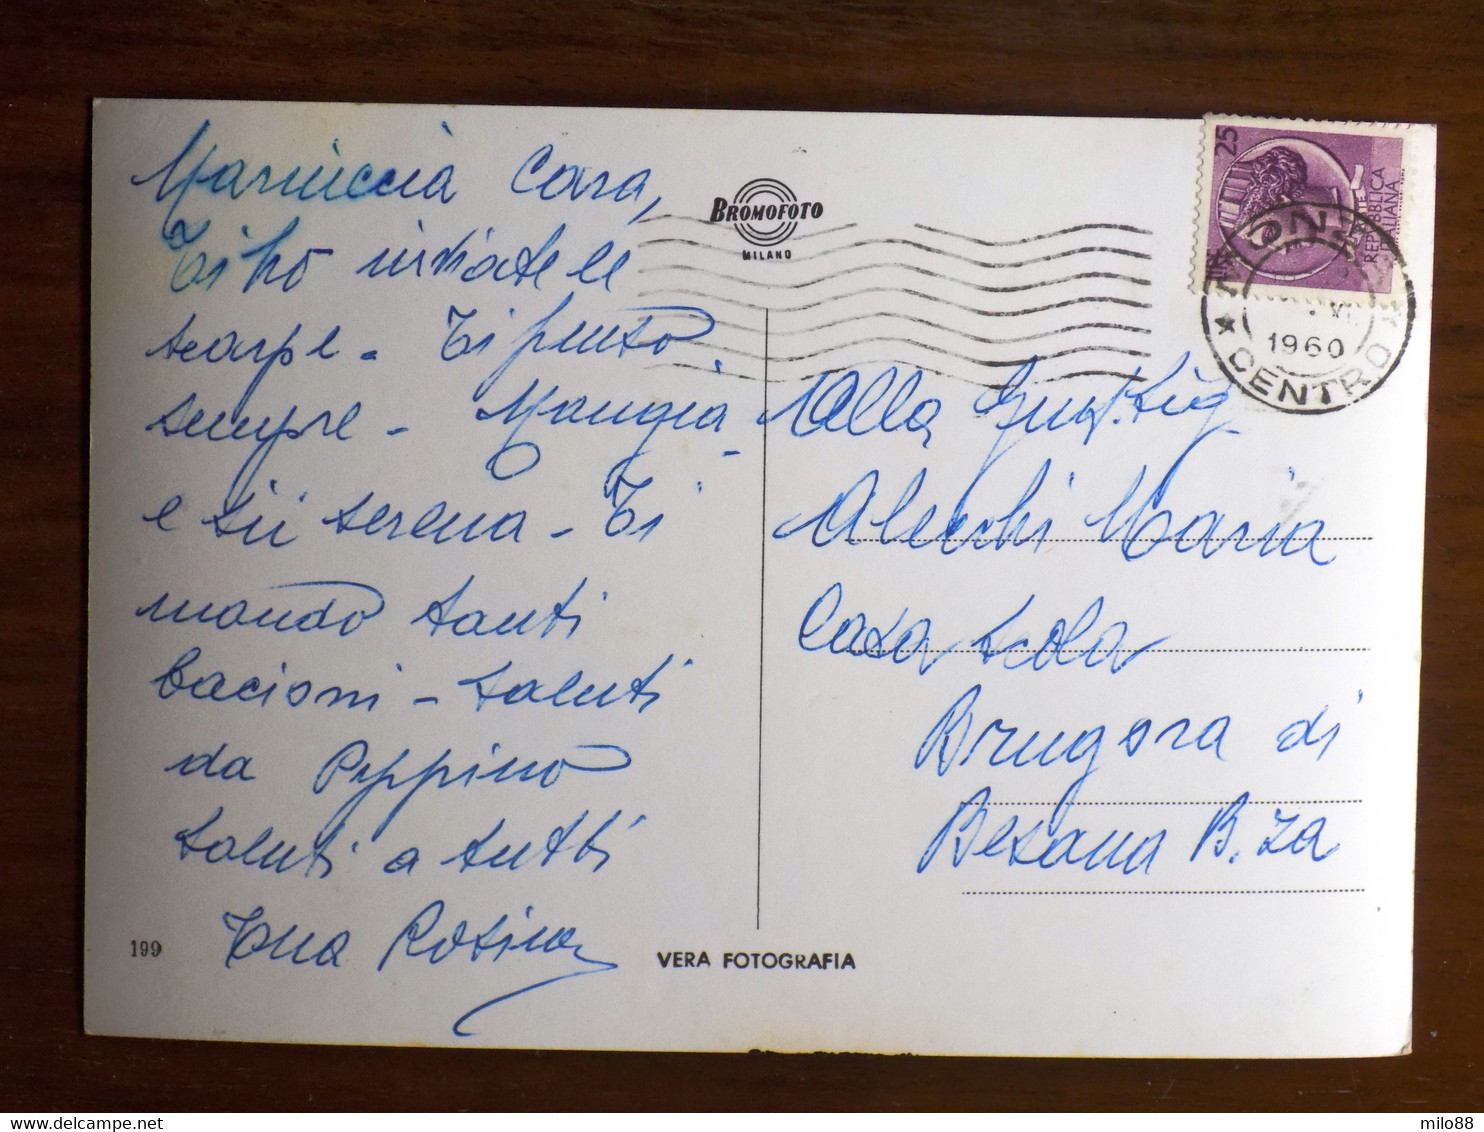 Mariuccia Cara,
Ti ho inviate le
scarpe - Ti penso
sempre - Mangia -
e sii serena - Ti
mando tanti
bacioni - Saluti
da Peppino
Saluti a tutti
Tua Rosina
199
BROMOFOTO
MILANO
VERA FOTOGRAFIA
25
POSTE
REPUBBLICA
ITALIANA
1960
CENTRO
Alla Gent. Sig.
Alecchi Maria
Casa Scola
Brugora di
Besana B.za
milo88